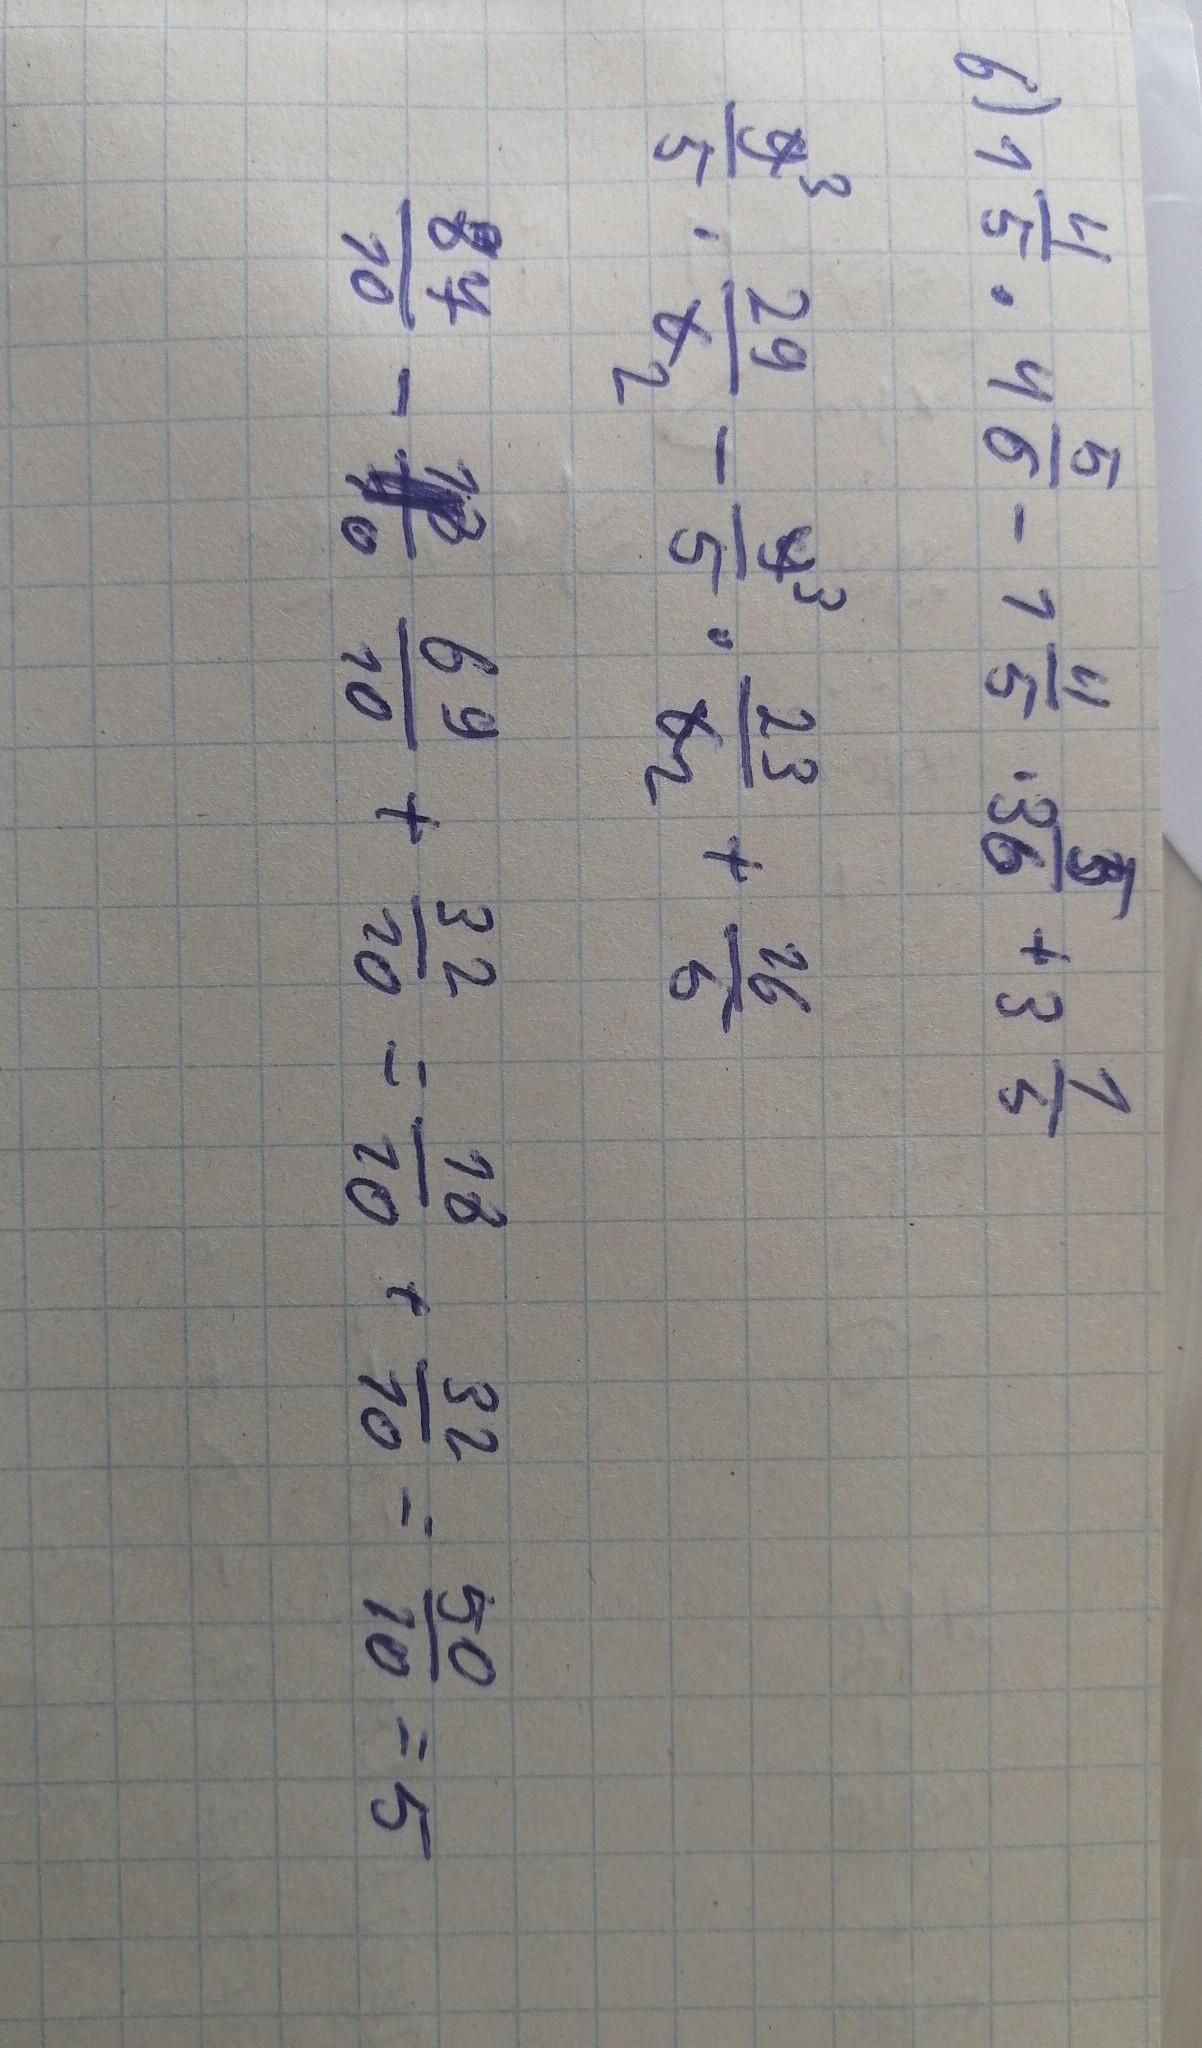 б) 1 4/5 · 4 5/6 - 1 4/5 · 3 5/6 + 3 1/5
9³/5 · 29/6₂ - 9³/5 · 23/6₂ + 16/5
87/10 - 69/10 + 32/10 = 18/10 + 32/10 = 50/10 = 5